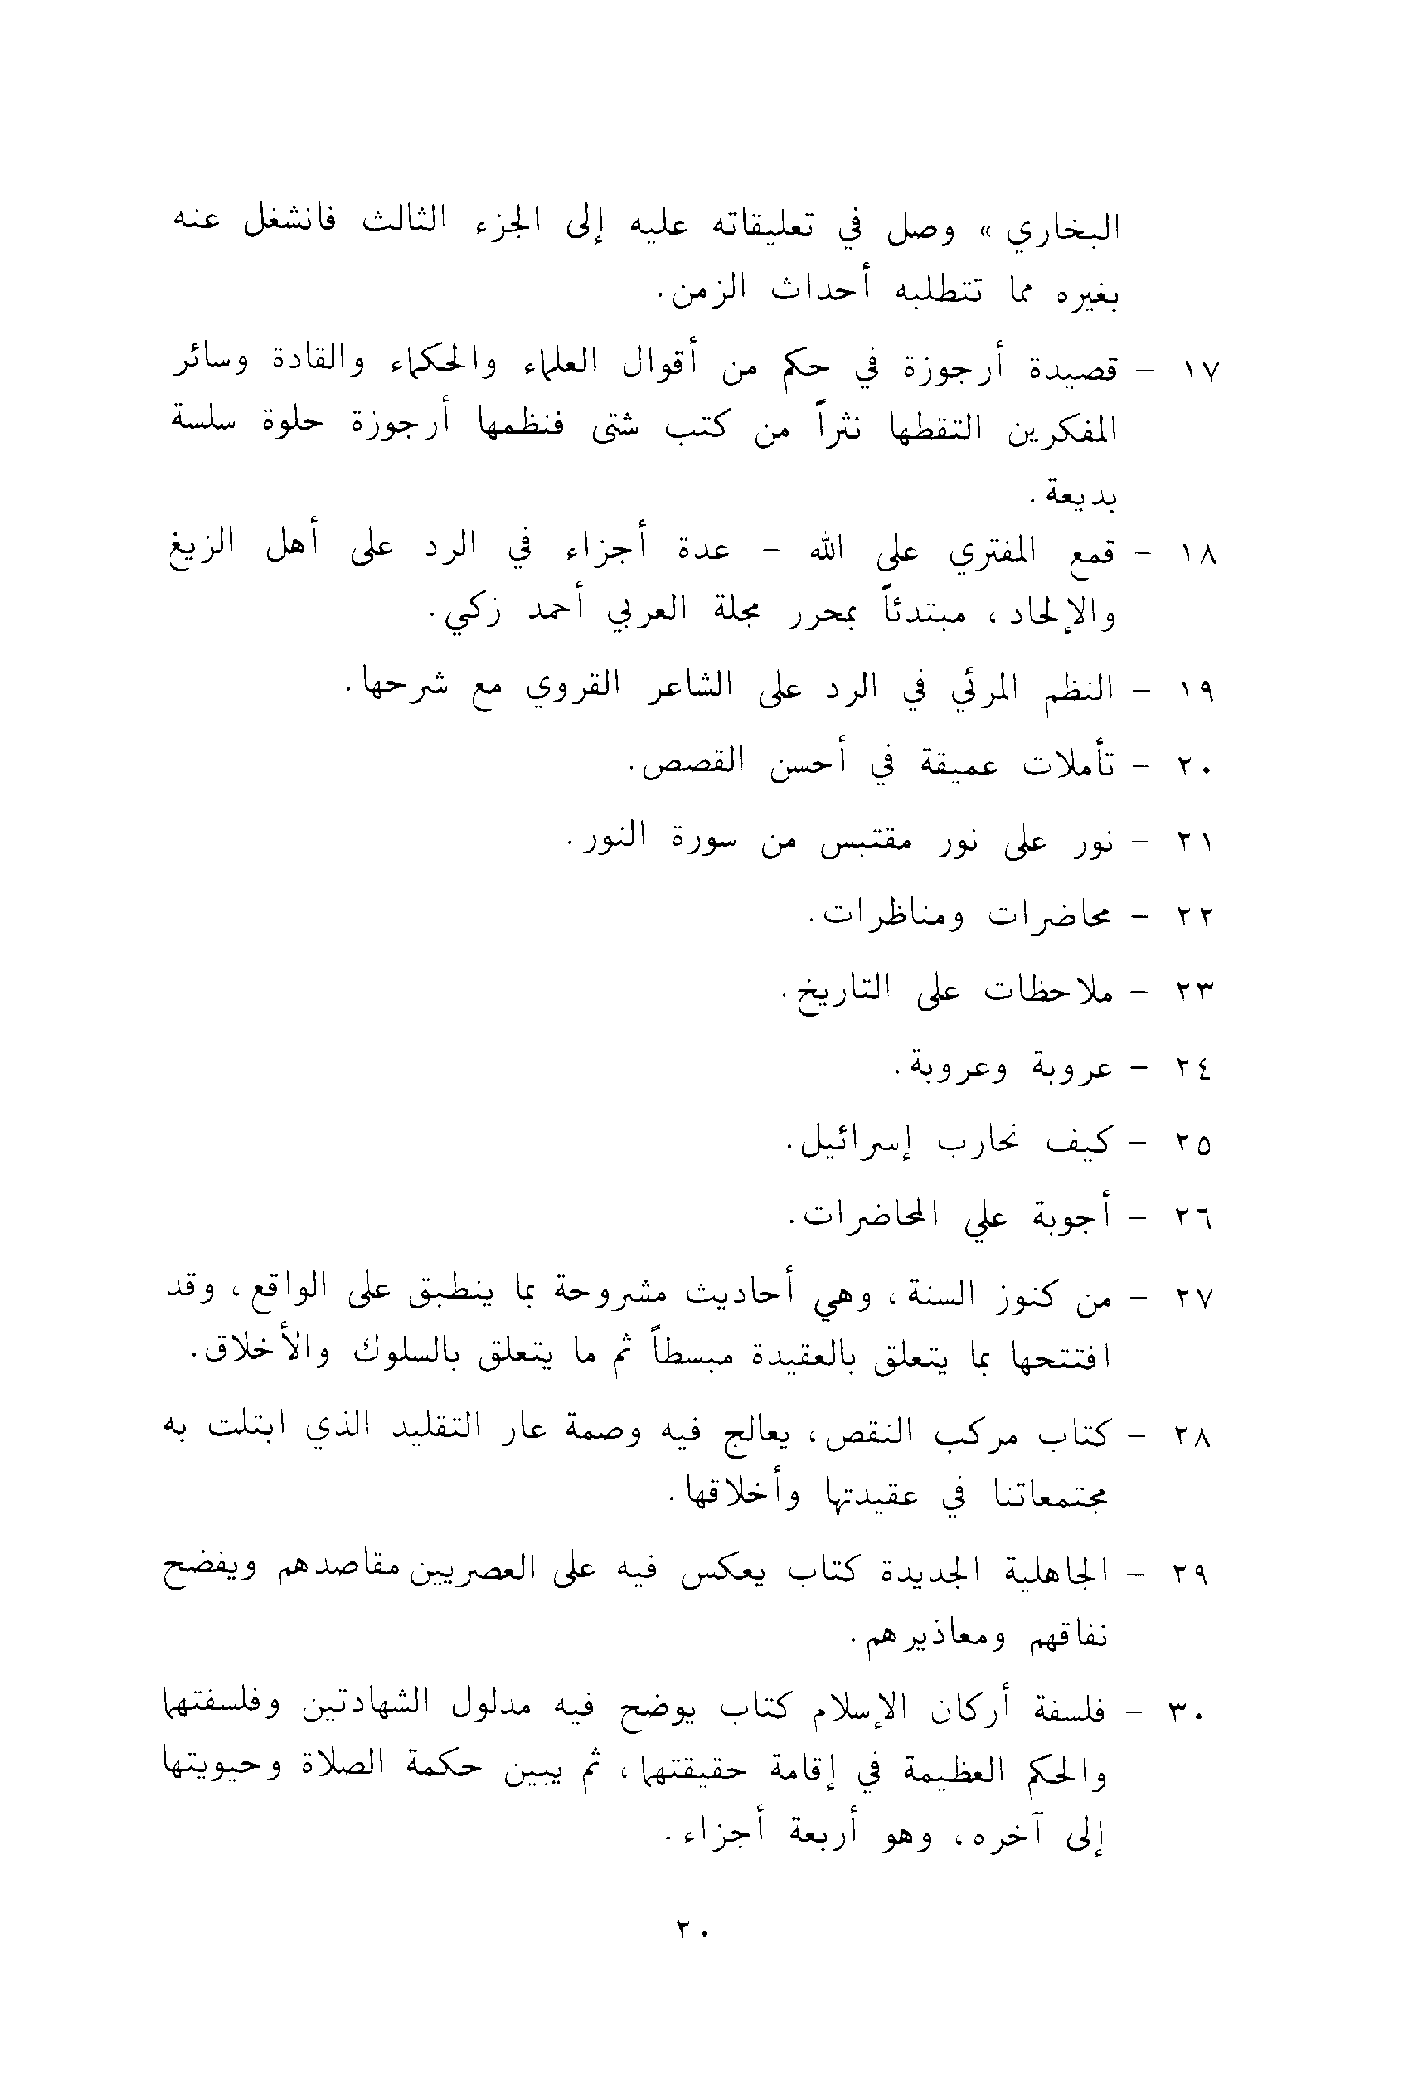 البخاري » وصل في تعليقاته عليه إلى الجزء الثالث فانشغل عنه
بغيره مما تتطلبه أحداث الزمن.
١٧ - قصيدة أرجوزة في حكم من أقوال العلماء والحكماء والقادة وسائر
المفكرين التقطها نثراً من كتب شتى فنظمها أرجوزة حلوة سلسة
بديعة.
١٨ - قمع المفتري على الله - عدة أجزاء في الرد على أهل الزيغ
والإلحاد، مبتدئاً بمحرر مجلة العربي أحمد زكي.
١٩ - النظم المرئي في الرد على الشاعر القروي مع شرحها.
٢٠ - تأملات عميقة في أحسن القصص.
٢١ - نور على نور مقتبس من سورة النور.
٢٢ - محاضرات ومناظرات.
٢٣ - ملاحظات على التاريخ.
٢٤ - عروبة وعروبة.
٢٥ - كيف نحارب إسرائيل.
٢٦ - أجوبة علي المحاضرات.
٢٧ - من كنوز السنة، وهي أحاديث مشروحة بما ينطبق على الواقع، وقد
افتتحها بما يتعلق بالعقيدة مبسطاً ثم ما يتعلق بالسلوك والأخلاق.
٢٨ - كتاب مركب النقص، يعالج فيه وصمة عار التقليد الذي ابتلت به
مجتمعاتنا في عقيدتها وأخلاقها.
٢٩ - الجاهلية الجديدة كتاب يعكس فيه على العصريين مقاصدهم ويفضح
نفاقهم ومعاذيرهم.
٣٠ - فلسفة أركان الإسلام كتاب يوضح فيه مدلول الشهادتين وفلسفتهما
والحكم العظيمة في إقامة حقيقتهما، ثم يبين حكمة الصلاة وحيويتها
إلى آخره، وهو أربعة أجزاء.
٢٠